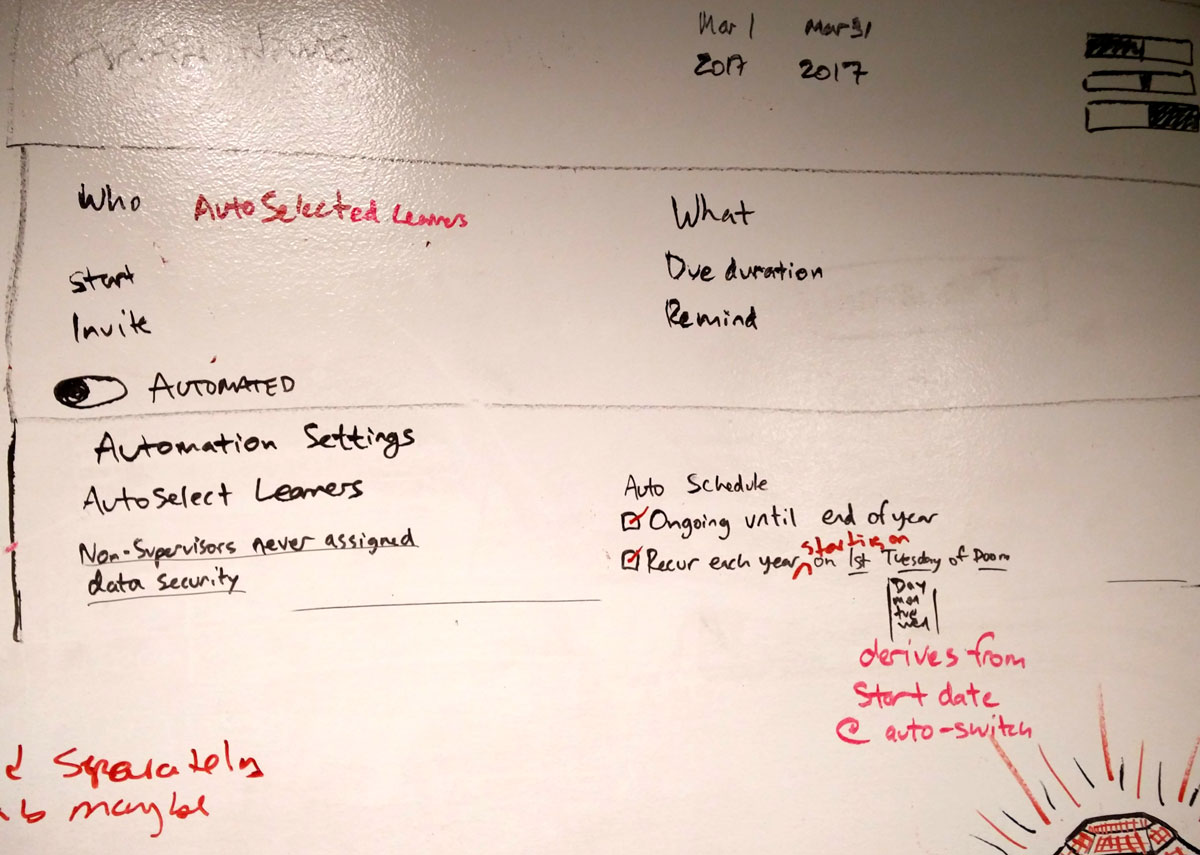 Mar 1 Mar 31
2017 2017
Who AutoSelected Learners
What
Start
Due duration
Invite
Remind
AUTOMATED
Automation Settings
AutoSelect Learners
Auto Schedule
Ongoing until end of year
starting on
Non-Supervisors never assigned
data security
Recur each year on 1st Tuesday of Doom
Day
mon
tue
wed
derives from
Start date
@ auto-switch
Separately
maybe